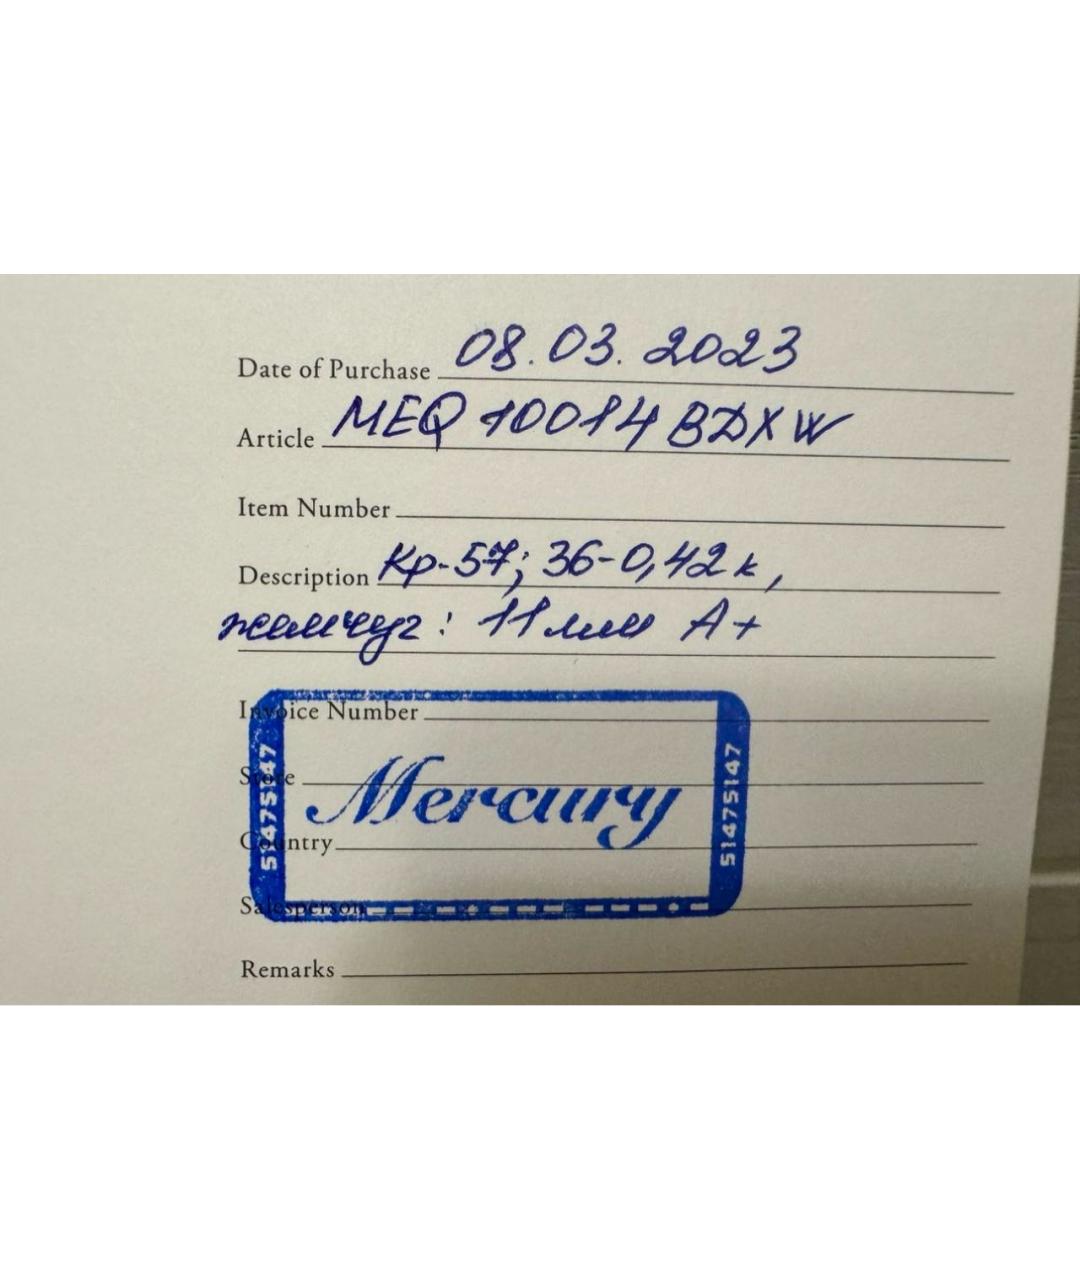 Date of Purchase 08.03.2023
Article MEQ 10014 BDXW
Item Number
Description Кр-57; 36-0,42к,
жемчуг: 11мм А+
Invoice Number
Store
Mercury
51475147
51475147
Country
Salesperson
Remarks